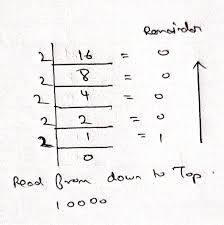 Remainder
2 | 16 = 0
2 | 8 = 0
2 | 4 = 0
2 | 2 = 0
2 | 1 = 1
0
Read from down to Top.
10000